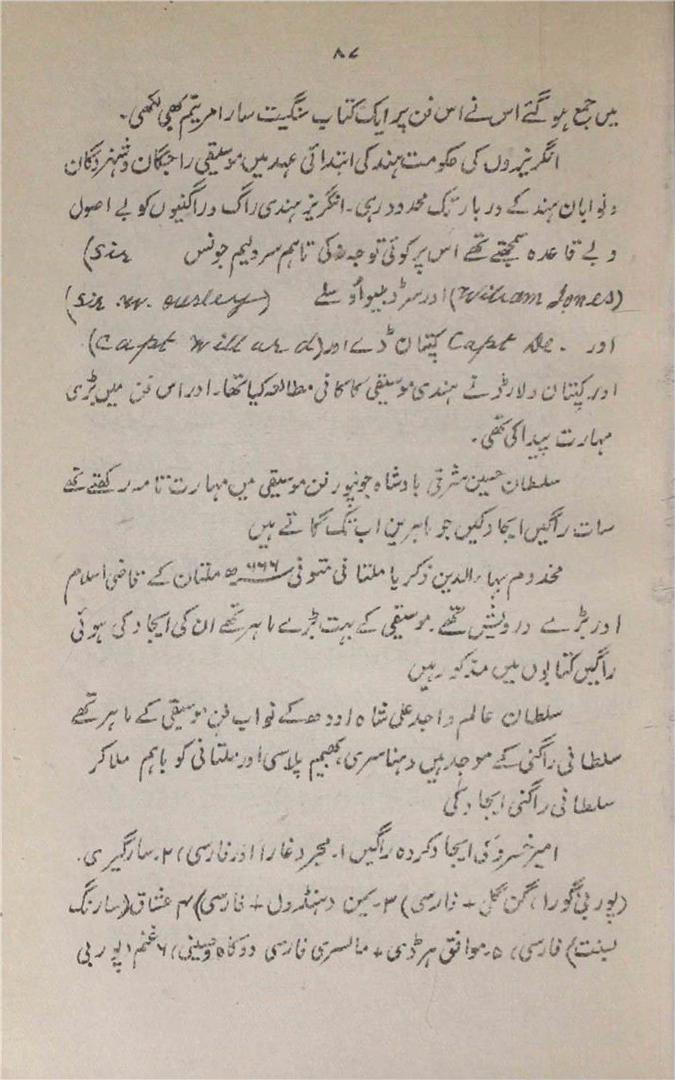 ۸۷
میں جمع ہو گئے اس نے اس فن پر ایک کتاب سنگیت سار امریتم بھی لکھی۔
انگریزوں کی حکومت ہند کی ابتدائی عہد میں موسیقی راجگان و شہزدگان
و نوابان ہند کے دربار تک محدود رہی۔ انگریز ہندی راگ و راگنیوں کو بے اصول
و بے قاعدہ سمجھتے تھے اس پر کوئی توجہ نہ کی تاہم سر ولیم جونس (Sir
William Jones) اور سر ڈبلیو اُوسلے (Sir W. Ousley)
اور Capt De. کپتان ڈے اور (Capt Willard)
اور کپتان ولارڈ نے ہندی موسیقی کا کافی مطالعہ کیا تھا۔ اور اس فن میں بڑی
مہارت پیدا کی تھی۔
سلطان حسین شرقی بادشاہ جونپور فن موسیقی میں مہارت تامہ رکھتے تھے
سات راگیں ایجاد کیں جو ماہرین اب تک گاتے ہیں
مخدوم بہاء الدین زکریا ملتانی متوفی ۶۶۶ھ ملتان کے قاضی اسلام
اور بڑے درویش تھے۔ موسیقی کے بہت بڑے ماہر تھے ان کی ایجاد کی ہوئی
راگیں کتابوں میں مذکور ہیں
سلطان عالم واجد علی شاہ اودھ کے نواب فن موسیقی کے ماہر تھے
سلطانی راگنی کے موجد ہیں دہناسری، بھیم پلاسی اور ملتانی کو باہم ملا کر
سلطانی راگنی ایجاد کی
امیر خسرو کی ایجاد کردہ راگیں ۱۔ مجرد غارا اور فارسی) ۲۔ سازگیری۔
(پوربی گورا، گن کلی + فارسی) ۳۔ یمن (ہنڈول + فارسی) ۴ عشاق (سارنگ
بسنت) فارسی) ۵۔ موافق ہرڈی + مالسری فارسی دوگاہ و حسینی) ۶ غنم (پوربی